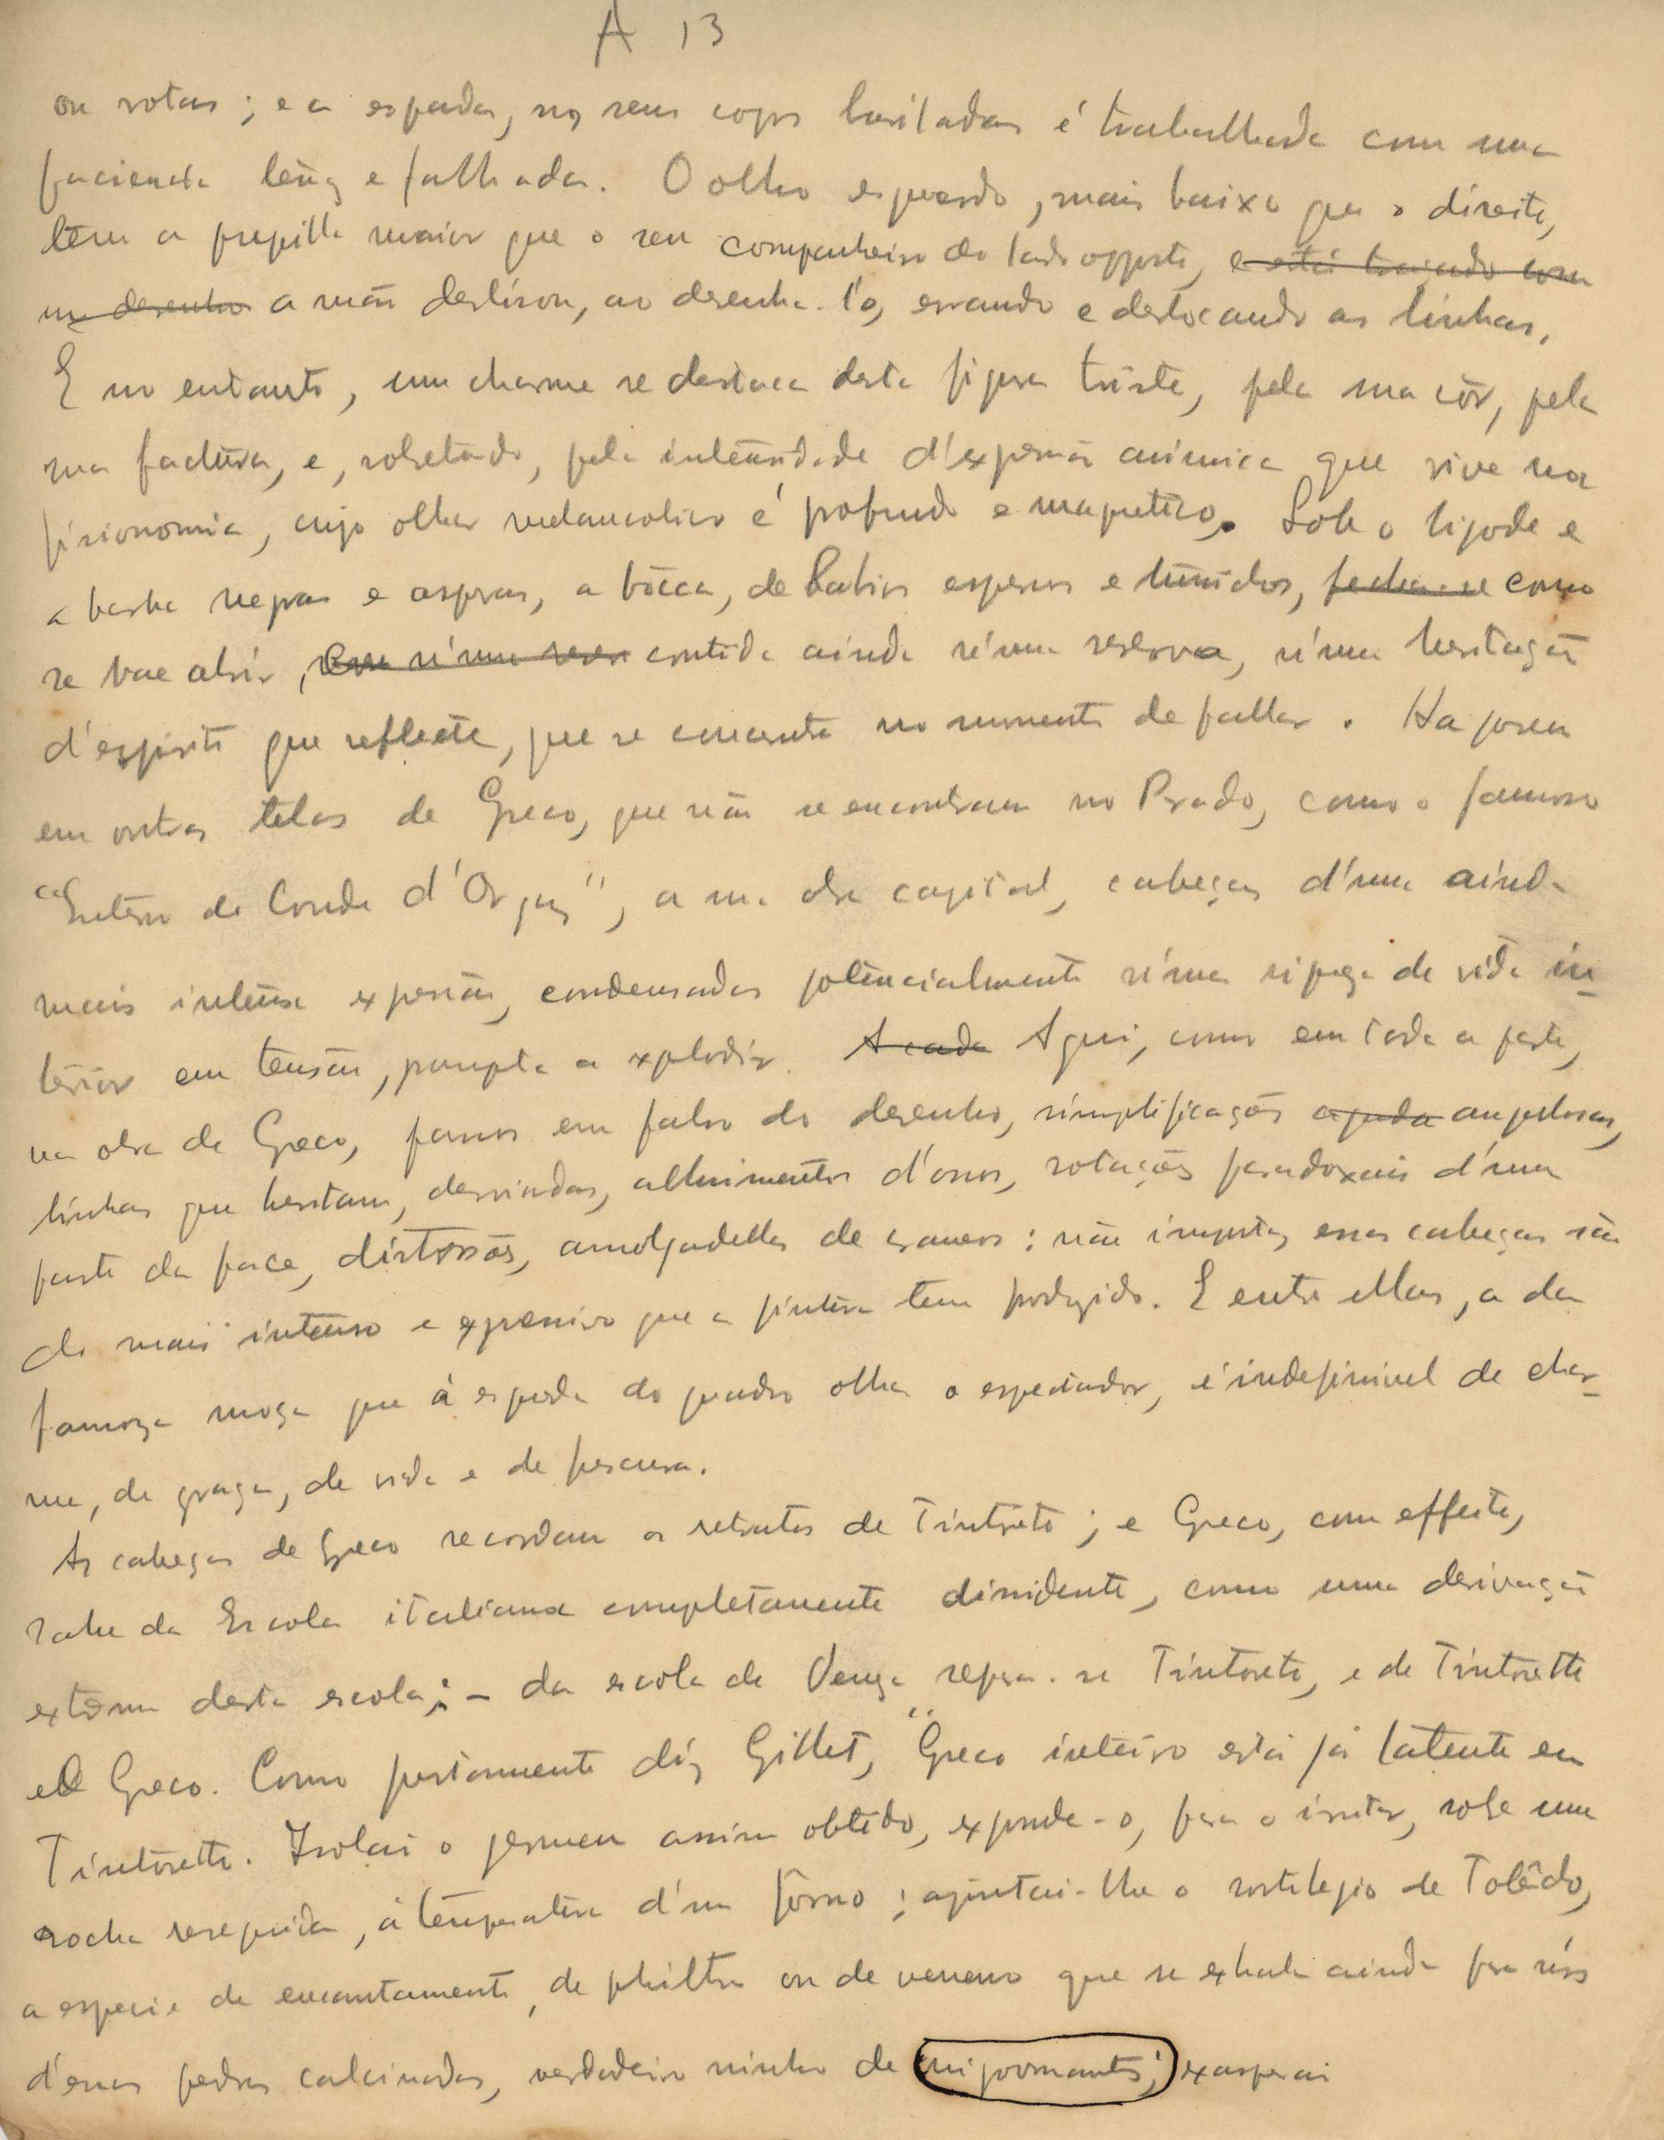 A 13
ou rotas; e a espada, nos seus copos burilados é trabalhada com uma
paciencia e falhada. O olho esquerdo, mais baixo que o direito,
tem a pupilla maior que o seu companheiro do lado opposto, e está traçado com
um desenho a mão deslisou, ao desenha-l'o, errando e deslocando as linhas.
E no entanto, um charme se destaca desta figura triste, pela sua côr, pela
sua factura, e, sobretudo, pela intensidade d'expressão animica que vive na
fisionomia, cujo olhar melancolico é profundo e magnetico. Sob o bigode e
a barba negras e asperas, a bôcca, de labios espessos e humidos, fecha-se como
se vae abrir, contida ainda n'uma reserva, n'uma hesitação
d'espirito que reflecte, que se concentra no momento de fallar. Ha porem
em outras telas de Greco, que não se encontram no Prado, como o famoso
"Enterro do Conde d'Orgaz", a sua obra capital, cabeças d'uma ainda
mais intensa expressão, condensadas potencialmente n'uma de vida in-
terior em tensão, prompta a explodir. A cada Aqui, como em toda a parte,
na obra de Greco, passos em falso do desenho, simplificações aguda angulosas,
linhas que hesitam, desviadas, d'ossos, rotações paradoxais d'uma
parte da face, distorsões, amolgadellas de craneos: não importa, essas cabeças são
do mais intenso e expressivo que a pintura tem produzido. E entre ellas, a da
famosa moça que á esquerda do quadro olha o espectador, é indefinivel de char-
me, de graça, de vida e de frescura.
As cabeças de Greco recordam os retratos de Tintoreto; e Greco, com effeito,
sahe da Escola italiana completamente dissidente, como uma derivação
extrema desta escola; - da escola de Veneza separa-se Tintoreto, e de Tintoretto
el Greco. Como justamente diz Gillet, "Greco inteiro está já latente em
Tintoretto. Isolai o germen assim obtido, exponde-o, para o irritar, sobre uma
rocha resequida, á temperatura d'um fôrno; ajuntai-lhe o sortilegio de Tolêdo,
a especie de encantamento, de philtro ou de veneno que se exhala ainda para nós
d'essas pedras calcinadas, verdadeiro ninho de nigromantes; exasperai